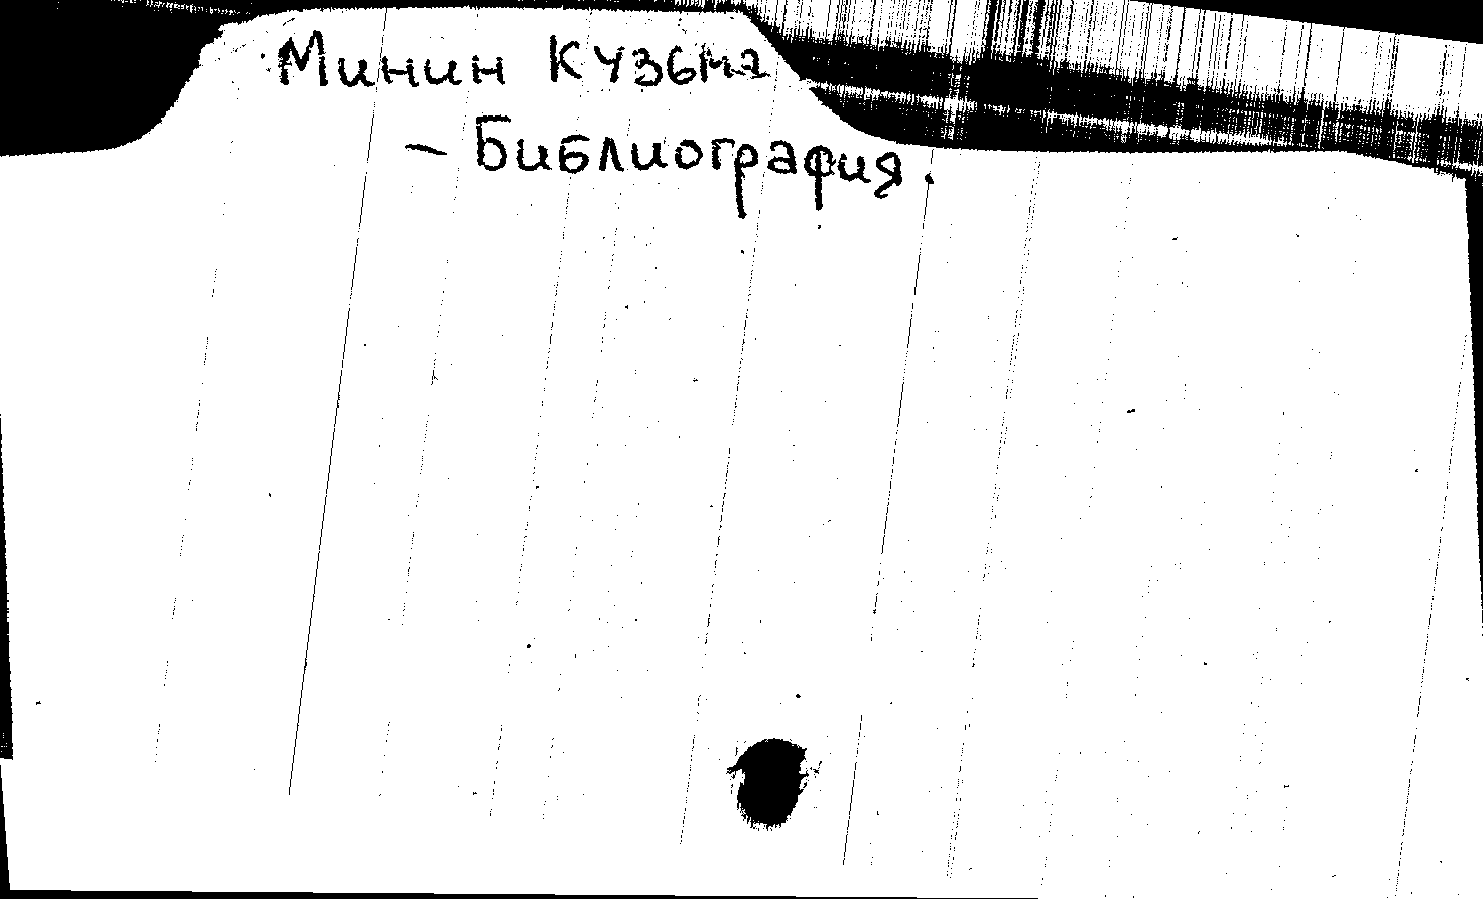 Минин Кузьма
– Библиография.